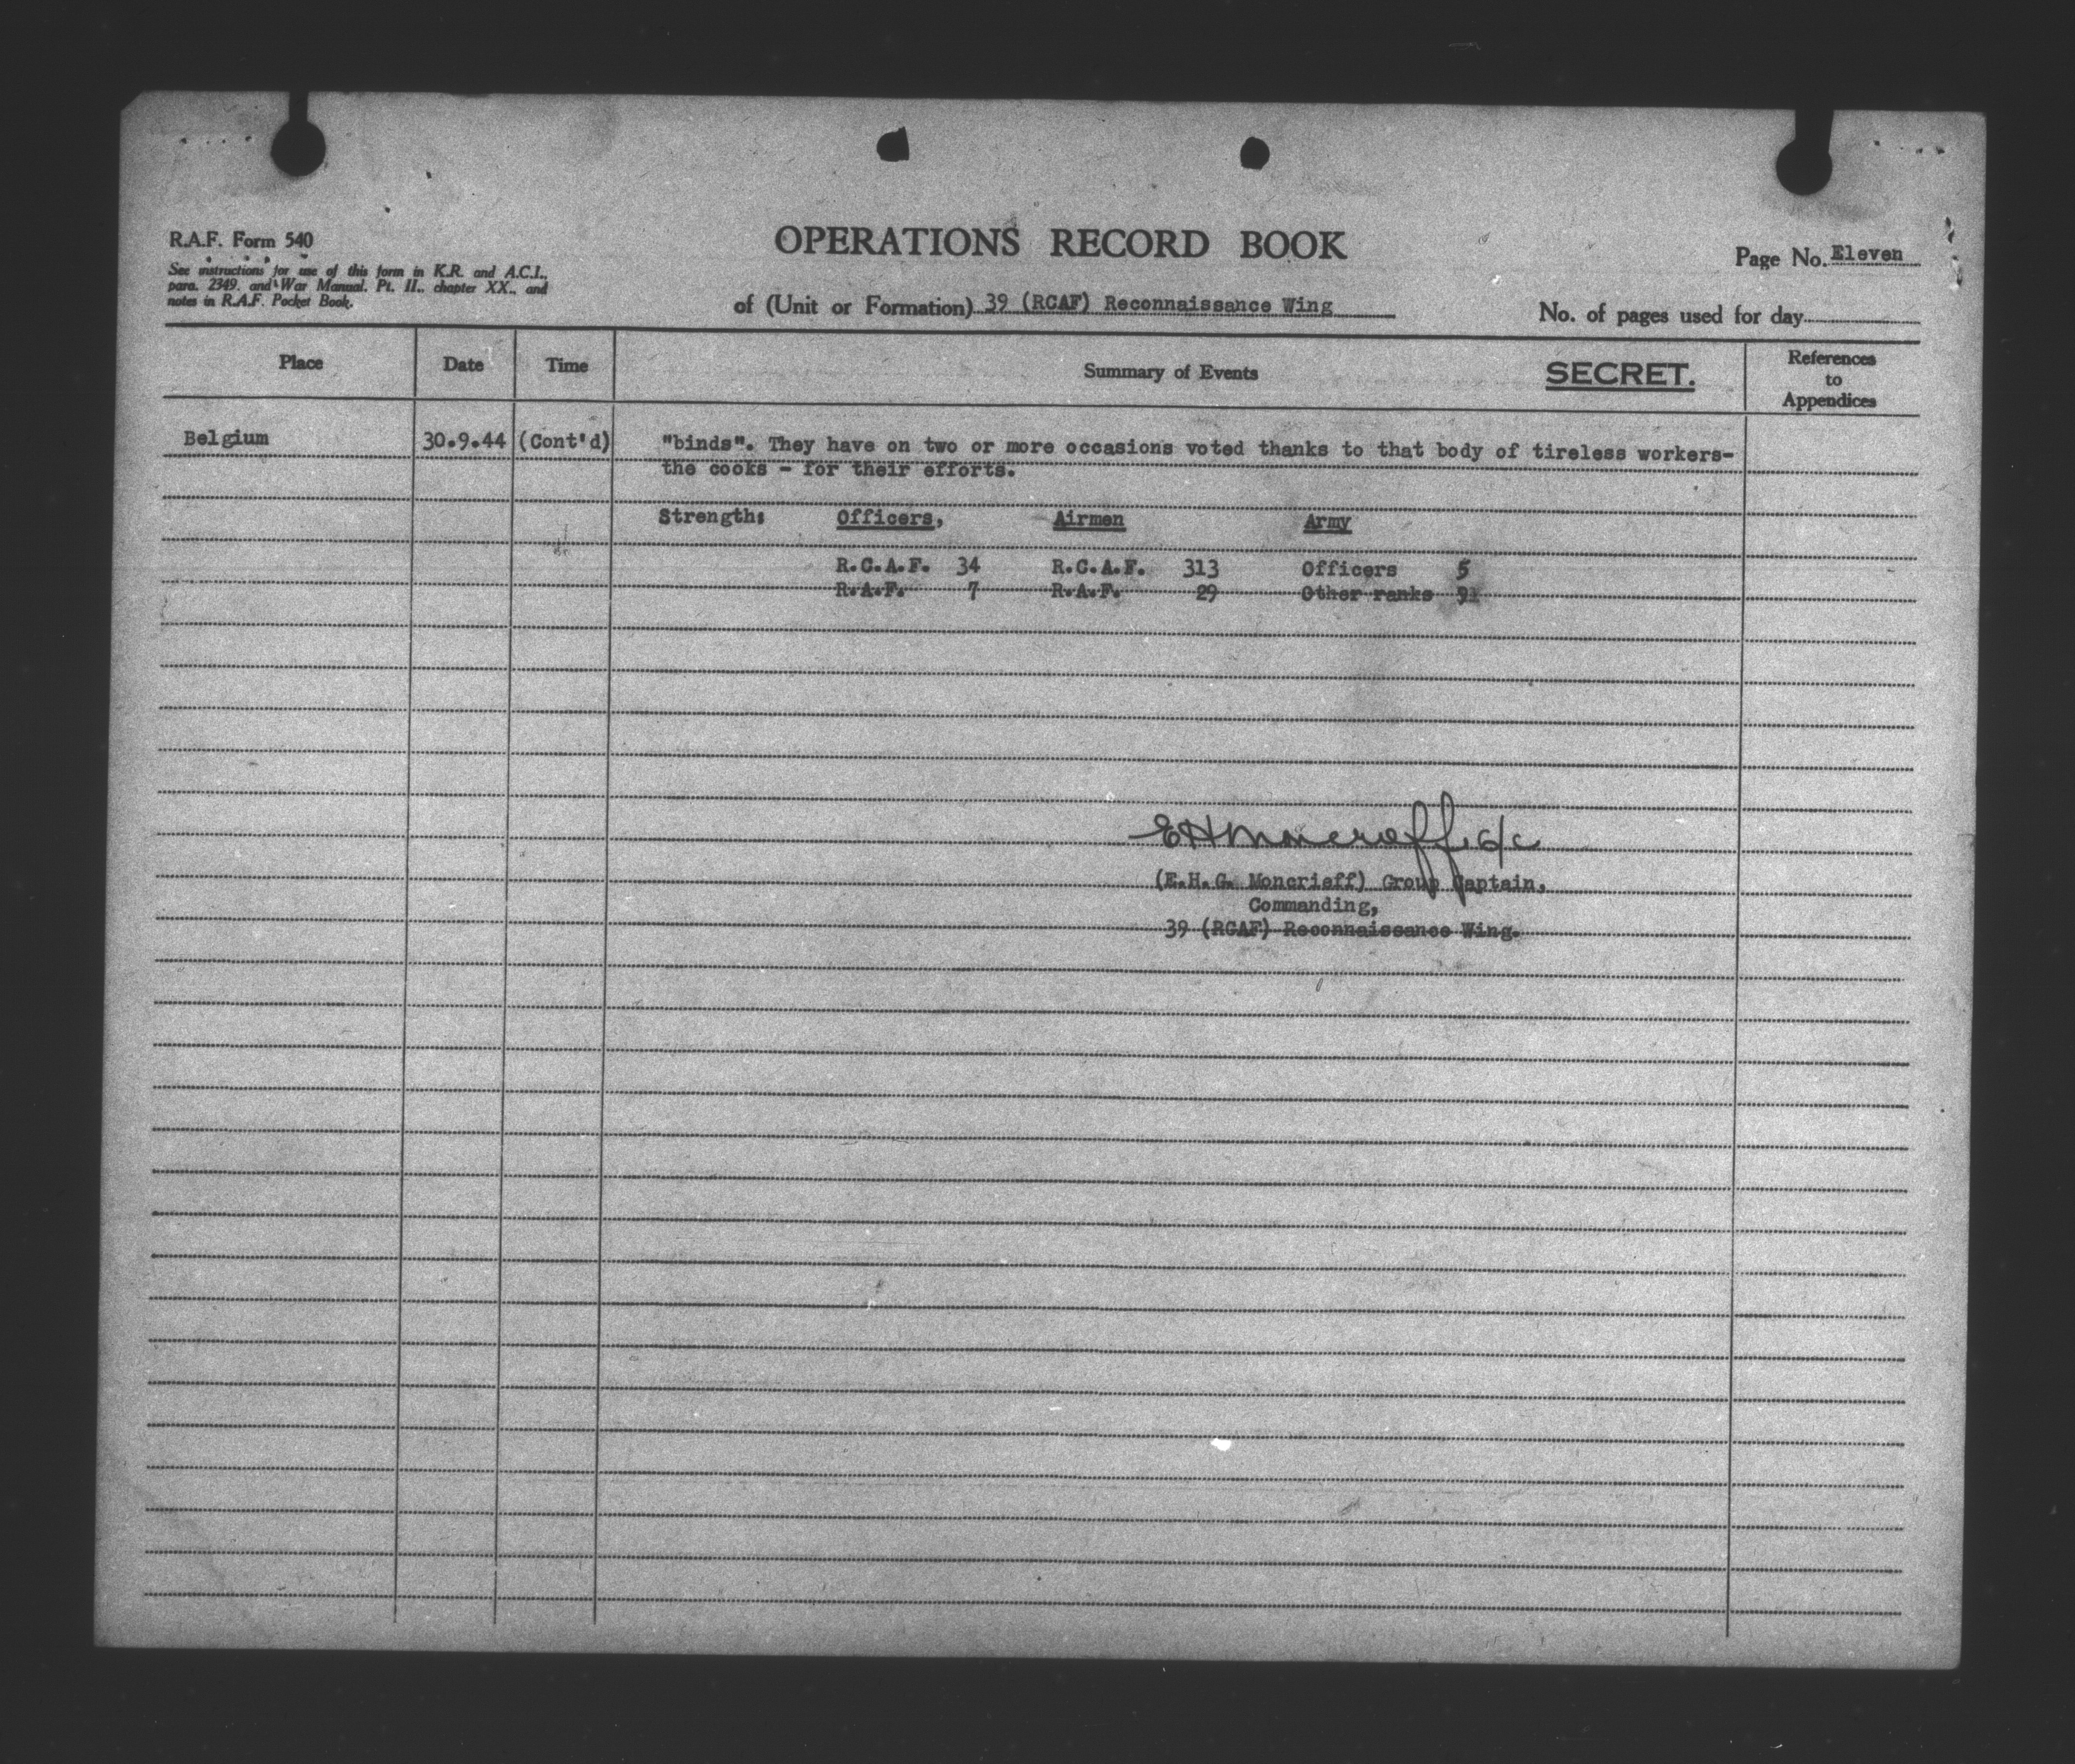 R.A.F. Form 540
See instructions for use of this form in K.R. and A.C.I.,
para. 2349. and War Manual. Pt. II., chapter XX., and
notes in R.A.F. Pocket Book.
OPERATIONS RECORD BOOK
Page No. Eleven
of (Unit or Formation) 39 (RCAF) Reconnaissance Wing
No. of pages used for day
Place Date Time Summary of Events SECRET. References to Appendices
Belgium 30.9.44 (Cont'd) "binds". They have on two or more occasions voted thanks to that body of tireless workers-
the cooks - for their efforts.
Strength: Officers, Airmen Army
R.C.A.F. 34 R.C.A.F. 313 Officers 5
R.A.F. 7 R.A.F. 29 Other ranks 91
EHMoncrieff G/C
(E.H.G. Moncrieff) Group Captain,
Commanding,
39 (RCAF) Reconnaissance Wing.